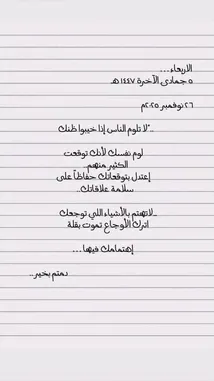 الاربعاء...
٥ جمادى الآخرة ١٤٤٧ هـ
٢٦ نوفمبر ٢٠٢٥م
.."لا تلوم الناس إذا خيبوا ظنك
لوم نفسك لأنك توقعت
الكثير منهم..
إعتدل بتوقعاتك حفاظاً على
سلامة علاقاتك..
..لاتهتم بالأشياء اللي توجعك
اترك الأوجاع تموت بقلة
إهتمامك فيها...
دمتم بخير..